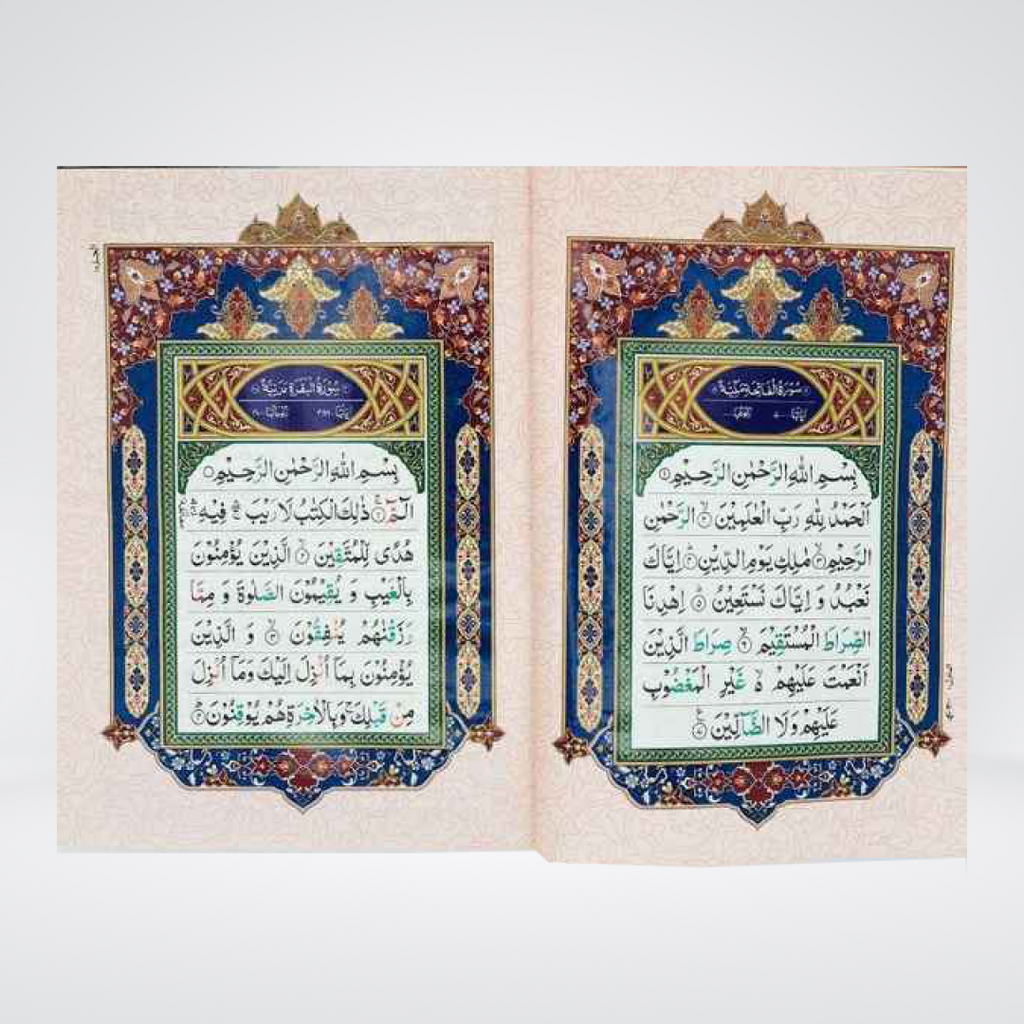 سُوْرَةُ الْفَاتِحَةِ مَكِّيَّةٌ
بِسْمِ اللّٰهِ الرَّحْمٰنِ الرَّحِيْمِ ۝۱
اَلْحَمْدُ لِلّٰهِ رَبِّ الْعٰلَمِيْنَ ۝۲ الرَّحْمٰنِ
الرَّحِيْمِ ۝۳ مٰلِكِ يَوْمِ الدِّيْنِ ۝۴ اِيَّاكَ
نَعْبُدُ وَ اِيَّاكَ نَسْتَعِيْنُ ۝۵ اِهْدِنَا
الصِّرَاطَ الْمُسْتَقِيْمَ ۝۶ صِرَاطَ الَّذِيْنَ
اَنْعَمْتَ عَلَيْهِمْ ۵ غَيْرِ الْمَغْضُوْبِ
عَلَيْهِمْ وَلَا الضَّآلِّيْنَ ۝۷
سُوْرَةُ الْبَقَرَةِ مَدَنِيَّةٌ
بِسْمِ اللّٰهِ الرَّحْمٰنِ الرَّحِيْمِ
الٓمّٓ ۝۱ ذٰلِكَ الْكِتٰبُ لَا رَيْبَ فِيْهِ
هُدًى لِّلْمُتَّقِيْنَ ۝۲ الَّذِيْنَ يُؤْمِنُوْنَ
بِالْغَيْبِ وَ يُقِيْمُوْنَ الصَّلٰوةَ وَ مِمَّا
رَزَقْنٰهُمْ يُنْفِقُوْنَ ۝۳ وَ الَّذِيْنَ
يُؤْمِنُوْنَ بِمَآ اُنْزِلَ اِلَيْكَ وَمَآ اُنْزِلَ
مِنْ قَبْلِكَ وَبِالْاٰخِرَةِ هُمْ يُوْقِنُوْنَ ۝۴